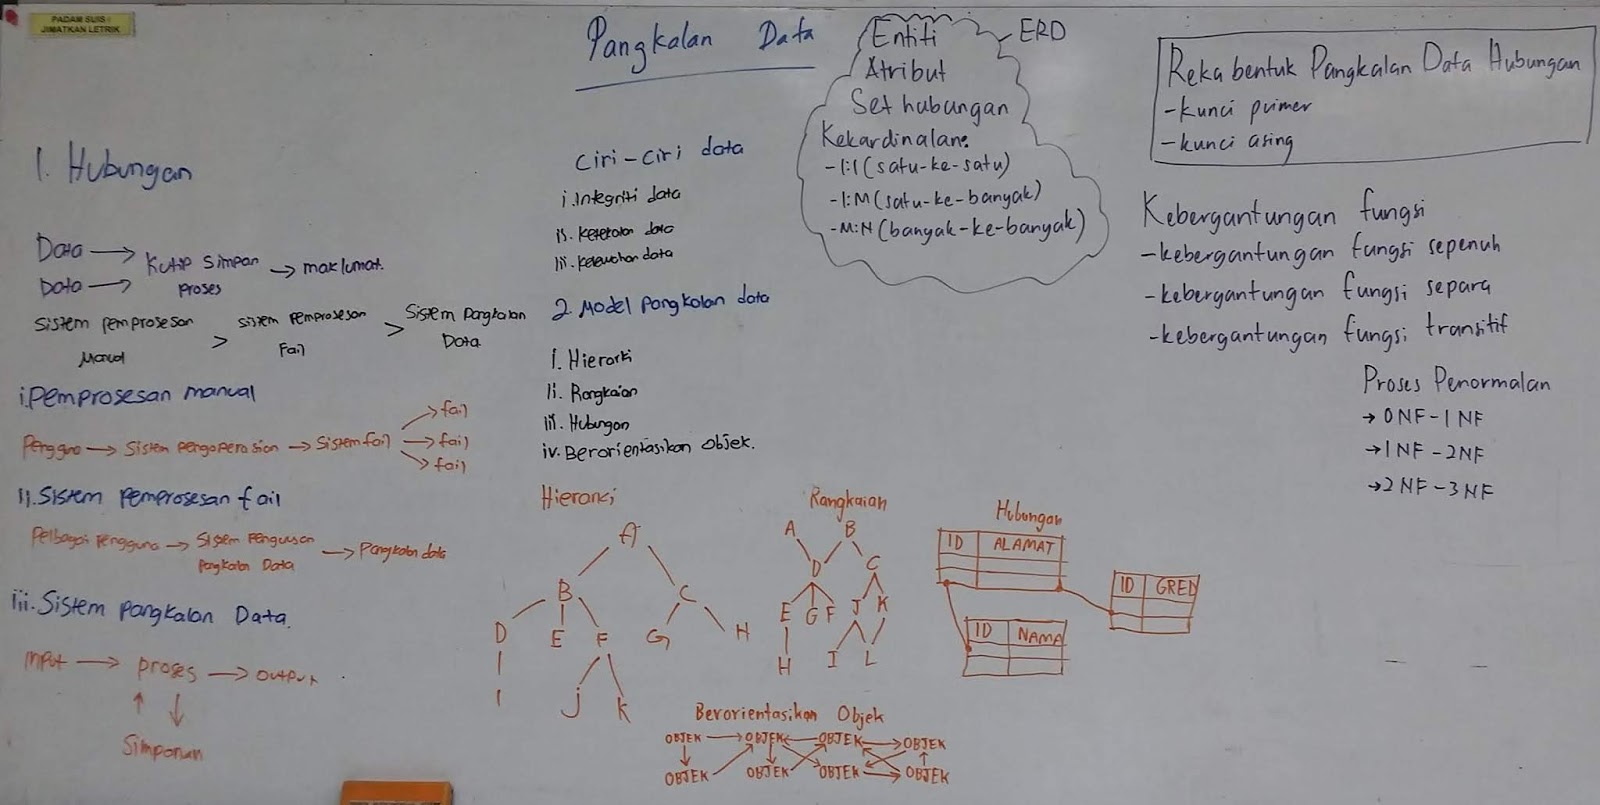 PADAM SUIS :
JIMATKAN LETRIK
Pangkalan Data
1. Hubungan
Data → Kutip simpan proses → maklumat.
Data →
Sistem pemprosesan Manual > sistem pemprosesan Fail > Sistem Pangkalan Data
i. Pemprosesan manual
Pengguna → Sistem pengoperasian → Sistem fail → fail
→ fail
→ fail
ii. Sistem pemprosesan fail
Pelbagai pengguna → Sistem Pengurusan Pangkalan Data → Pangkalan data
iii. Sistem pangkalan Data.
Input → proses → output
↑ ↓
Simponan
Ciri-Ciri data
i. Integriti data
iii. data
2. Model pangkalan data
1. Hierarki
ii. Rangkaian
iii. Hubungan
iv. Berorientasikan Objek.
Entiti
ERD
Atribut
Set hubungan
Kekardinalan:
-1:1 (satu-ke-satu)
-1:M (satu-ke-banyak)
-M:N (banyak-ke-banyak)
Reka bentuk Pangkalan Data Hubungan
-kunci primer
-kunci asing
Kebergantungan fungsi
-kebergantungan fungsi sepenuh
-kebergantungan fungsi separa
-kebergantungan fungsi transitif
Proses Penormalan
→ 0NF-1NF
→ 1NF-2NF
→ 2NF-3NF
Hierarki
A
B C
D E F G H
I J K
Rangkaian
A B
D C
E G F J K
H I L
Hubungan
ID ALAMAT
ID GRED
ID NAMA
Berorientasikan Objek
OBJEK OBJEK OBJEK OBJEK
OBJEK OBJEK OBJEK OBJEK